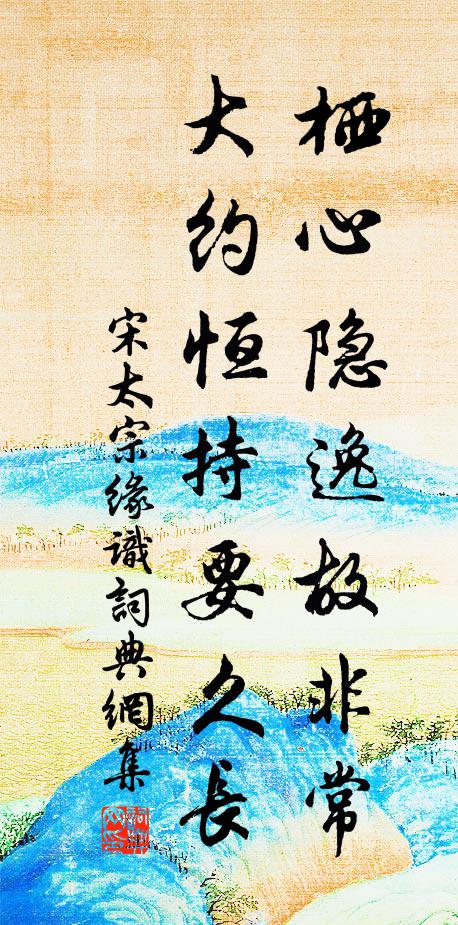 栖心隐逸故非常
大约恒持要久长
宋太宗缘識詞典網集